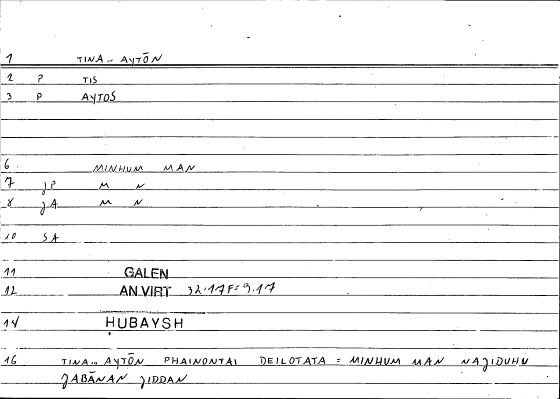 1 TINA... AYTŌN
2 P TIS
3 P AYTOS
6 MINHUM MAN
7 JP M N
8 JA M N
10 SA
11 GALEN
12 AN.VIRT 32.17F=9.17
14 ḤUBAYSH
16 TINA... AYTŌN PHAINONTAI DEILOTATA = MINHUM MAN NAJIDUHU
JABĀNAN JIDDAN